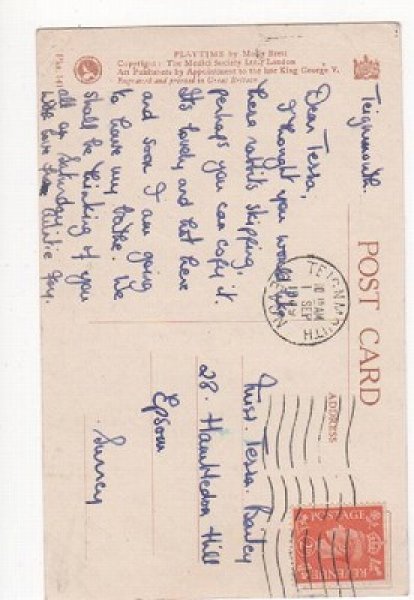 PLAYTIME by Molly Brett
Copyright: The Medici Society Ltd., London
Art Publishers by Appointment to the late King George V.
Engraved and printed in Great Britain
Pkt. 141
Teignmouth.
Dear Tessa,
I thought you would like
these rabbits skipping,
perhaps you can copy it.
Its lovely and hot here
and soon I am going
to have my bathe. We
shall be thinking of you
all on Saturday
With love from Auntie
POST CARD
ADDRESS
TEIGNMOUTH
10 15 AM
1 SEP
DEVON
Miss. Tessa Bailey
28. Hambledon Hill
Epsom
Surrey
POSTAGE
REVENUE